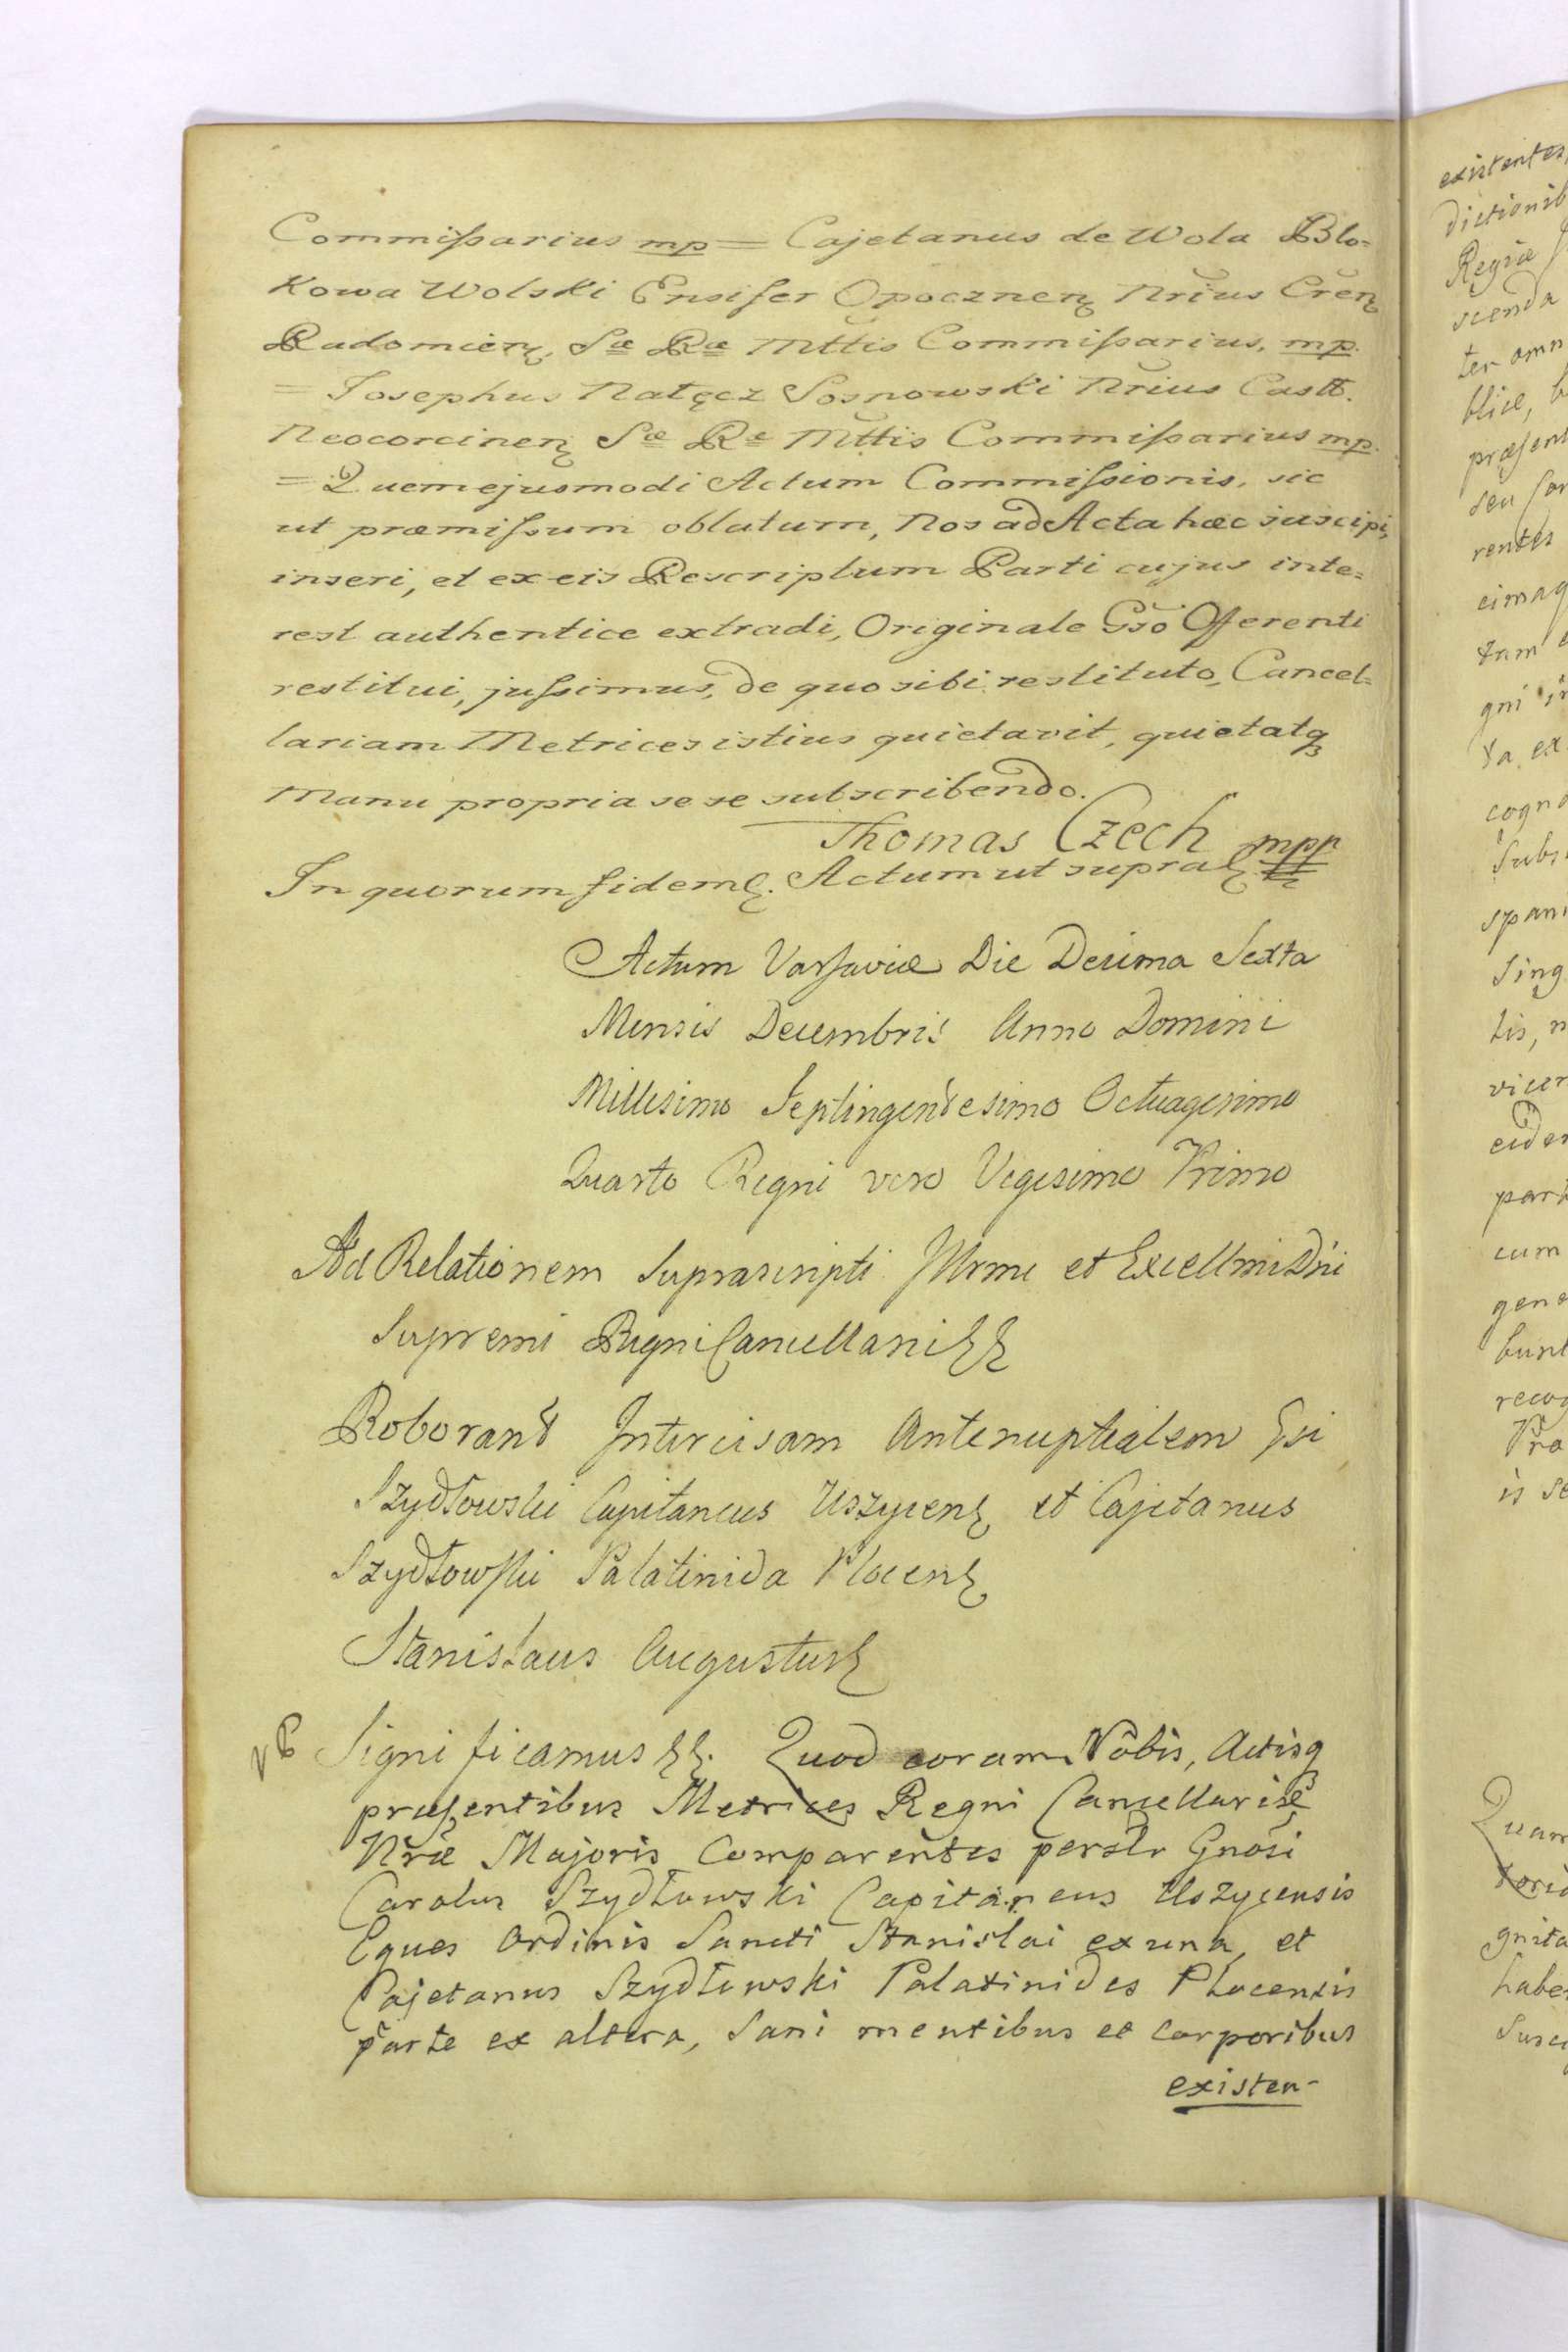 Commißarius mp = Cajetanus de Wola Blo=
kowa Wolski Ensifer Opocznen Nrius Cren
Radomien, Sæ Ræ Mttis Commißarius, mp.
= Josephus Nałęcz Sosnowski Nrius Castr.
Neocorcinen Sæ Re Mttis Commißarius mp.
= Quem ejusmodi Actum Commißionis, sic
ut præmißum oblatum, Nos ad Acta hæc suscipi,
inseri, et ex eis Rescriptum Parti cujus inte=
rest authentice extradi, Originale Gso Offerenti
restitui, jußimus, de quo sibi restituto, Cancel=
lariam Metrices istius quietavit, quietatq
Manu propria se se subscribendo.
Thomas Czech mpp
In quorum fidem. Actum ut supra
Actum Varsaviæ Die Decima Sexta
Mensis Decembris Anno Domini
Millesimo Septingentesimo Octuagesimo
Quarto Regni vero Vigesimo Primo
Ad Relationem Suprascripti Illrmi et Excellmi Dni
Supremi Regni Cancellarii
Roborant Intercisam Antenuptialem Gsi
Szydłowski Capitaneus Uszycen et Cajetanus
Szydłowski Palatinida Plocen
Stanislaus Augustus
Significamus. Quod coram Nobis, Actisq
præsentibus Metrices Regni Cancellariæ
Nræ Majoris Comparentes persłr Gnosi
Carolus Szydłowski Capitaneus Uszycensis
Eques Ordinis Sancti Stanislai ex una, et
Cajetanus Szydłowski Palatinides Plocensis
parte ex altera, Sani mentibus et corporibus
existen-
existentes,
Regiæ
scenda
ter omn
blice, b
præsent
seu
rentes
eimaq
tum
gni
ta, ex
cogno
Subs
spani
Sing
tis, n
vicer
eider
part
cum
gene
bunt
recog
Pro
is se
Quam
torio
gnita
habe
Susci